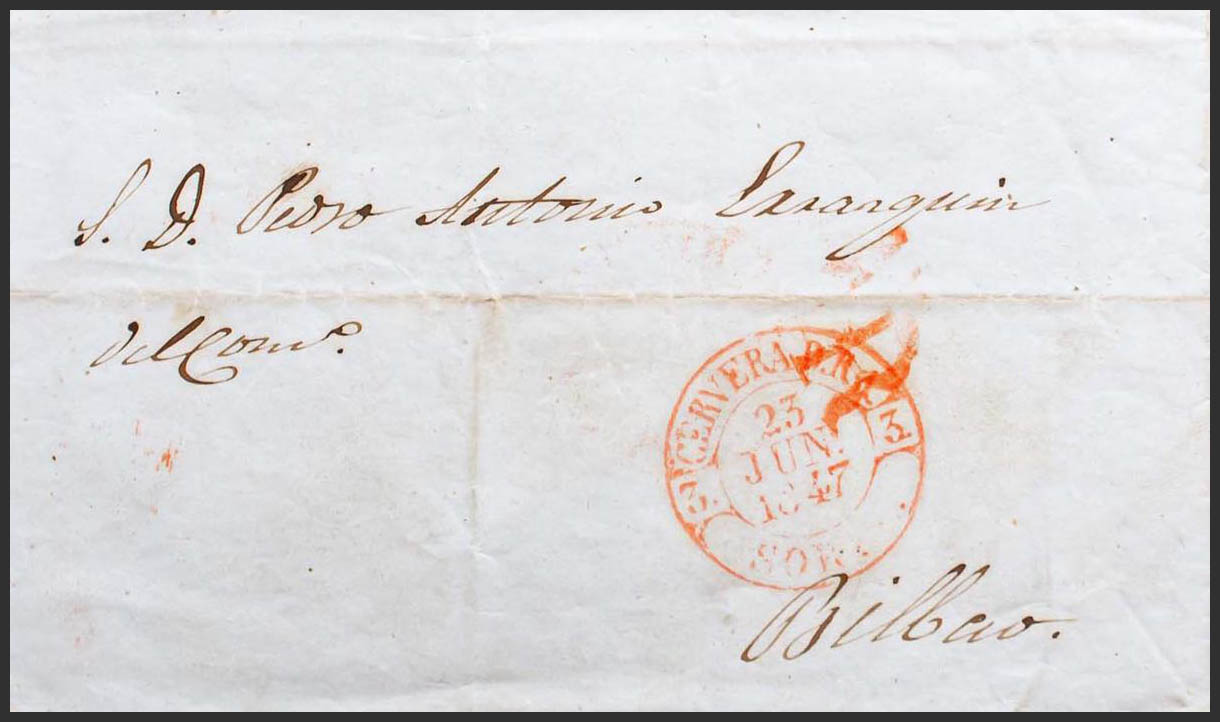 S. D. Pedro Antonio Exararquin
del Com.o
3. CERVERA D. R. 3.
23
JUN.
1847
SOR
Bilbao.